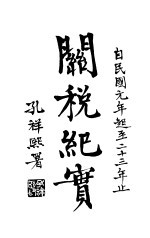 自民國元年起至二十三年止
關稅紀實
孔祥熙署